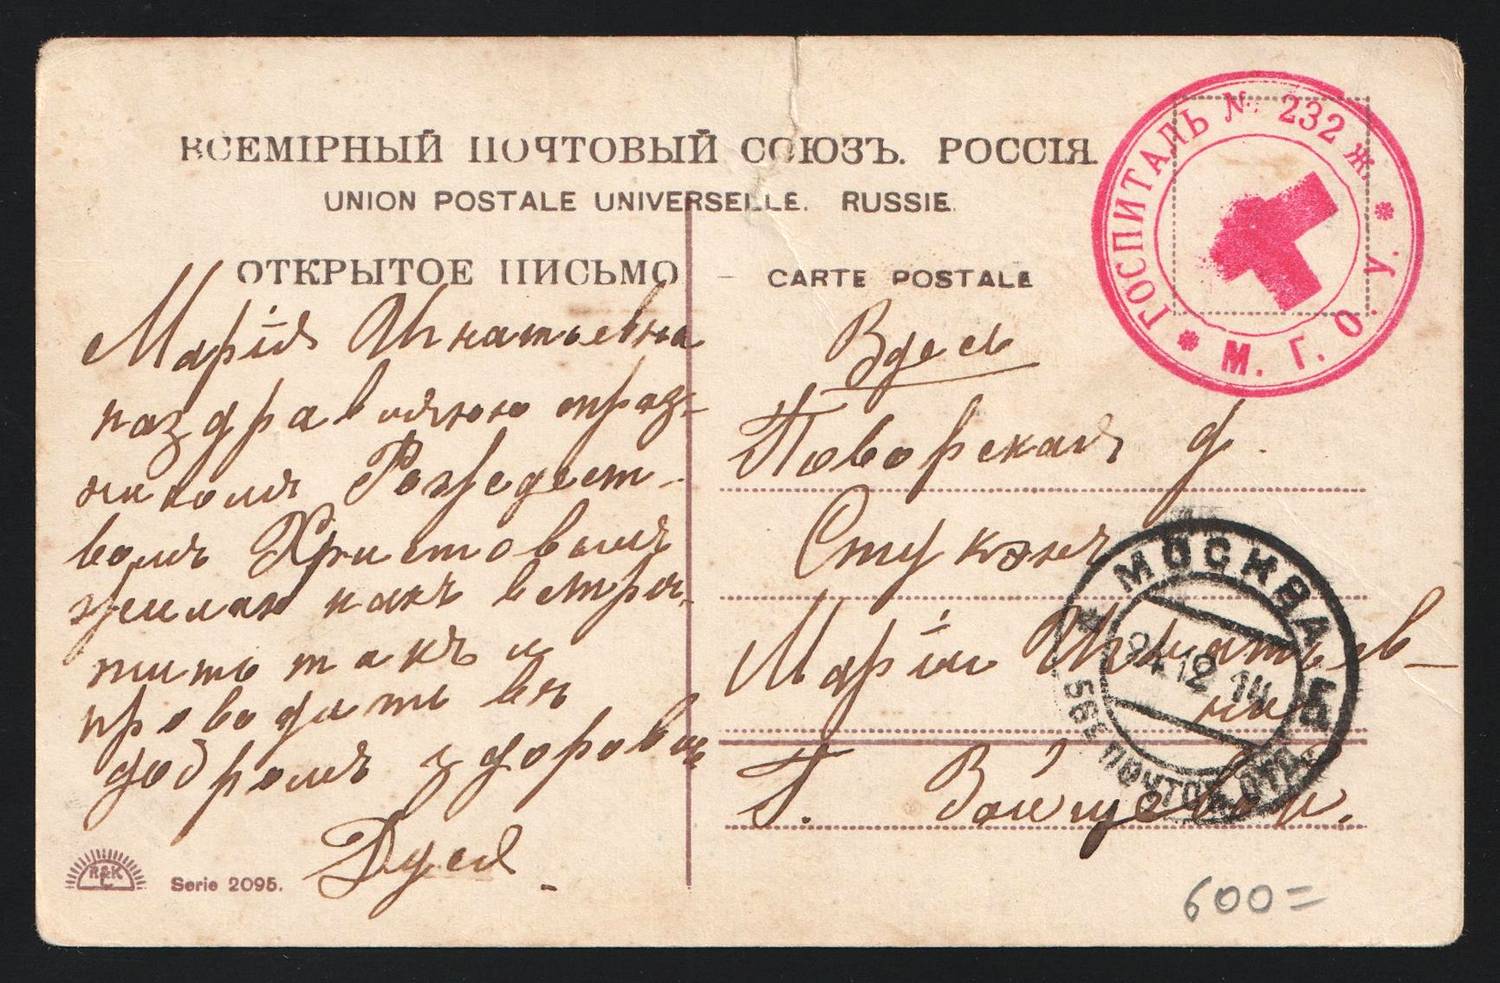 ВСЕМІРНЫЙ ПОЧТОВЫЙ СОЮЗЪ. РОССІЯ.
UNION POSTALE UNIVERSELLE. RUSSIE.
ОТКРЫТОЕ ПИСЬМО – CARTE POSTALE
ГОСПИТАЛЬ № 232 Ж.
М. Г. О. У.
Марія Игнатьевна
поздравляю праз-
никомъ Рождест-
вомъ Христовымъ
желаю какъ встре-
тить такъ и
проводить въ
добромъ здоровье
Дуся
Здесь
Поварская д.
Стукэнъ
Маріи Игнатьев-
ни
Г.
МОСКВА
24 12 14
56Е ПОЧТОВ. ОТД.
R&K
L
Serie 2095.
600=